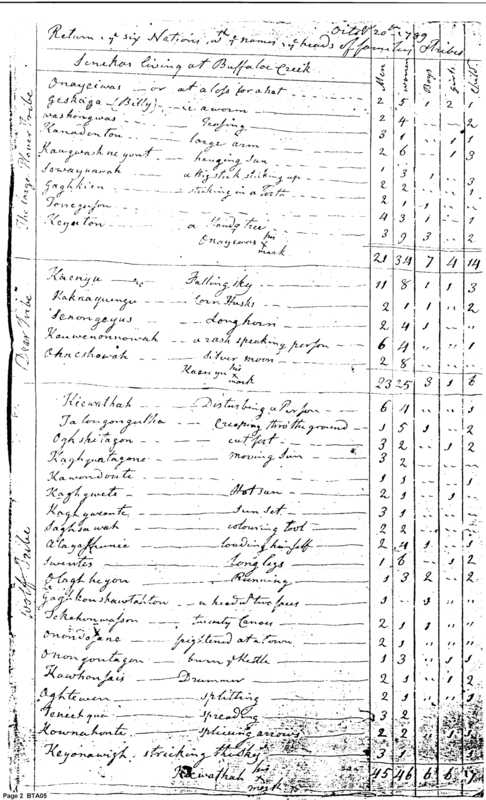 October 20th 1789
Return of six Nations, wth ye names of ye heads of families Tribes
Senekas living at Buffaloe Creek
Men women Boys girls Child
The large Plover Tribe
Onayciwas or at a loss for a hat 2 5 1 2 1
Geshaga (Billy) 2 4 2
washongwas Grasing 3 1 1 1
Kanadenton large arm 2 6 1 3
Kaugwashneyont hanging Sun 1 3 1 3
Sowaynawah a Big stick sticking up 2 2 1
Gaghkien sticking in a Tooth 2 1 1
Tonegeyson 4 3 1 1
Keyaton a Handy tree 3 9 3 2
Onayciwas his
mark
21 34 7 4 14
Dear Tribe
Kaenyu Falling sky 11 8 1 1 3
Kaknaguengu Corn Husks 2 1 1 2
Senongeyus Longhorn 2 4 1
Kauwenonnowah a rash speaking person 6 4 1
Ohneshowah Silver moon 2 8
Kaenyu his
mark
23 25 3 1 6
Wolff Tribe
Kiewathah Disturbing a Person 6 4 1
Talongongultha Creeping thro' the ground 1 5 1 2
Oghshetagon cut feet 3 2 1 2
Kaghyuatagone moving Sun 3 2
Kawondoute 1 1 1
Kaghgwete Hot sun 2 1
Kaghgweante Sun set 3 1
Saghsawah colouring tool 2 2
loading himself 2 4 1 1
Swentes Long legs 1 6 1 2
Otagheyon Running 1 3 2 2
a head of two faces 1 3
twenty Canoes 2 1 1
frightened at a town 2 1
Onongontagon burn ye Kettle 1 3 1
Kawhonfais Drummer 2 1 1 2
Oghtewen splitting 2 1
Teneetqua spreading 3 2
Kownahonte spliceing arrows 2 2 1
Keyonawigh stricking the sky 3 1
Kiewathah his
mark
45 46 6 6
Page 2 BTA05